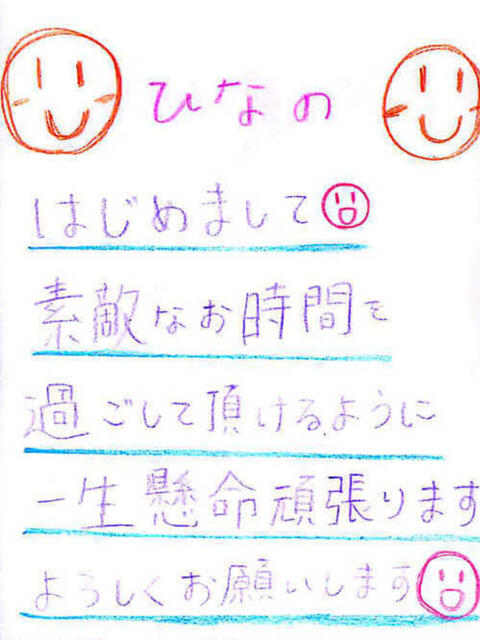 ひなの
はじめまして
素敵なお時間を
過ごして頂けるように
一生懸命頑張ります
よろしくお願いします